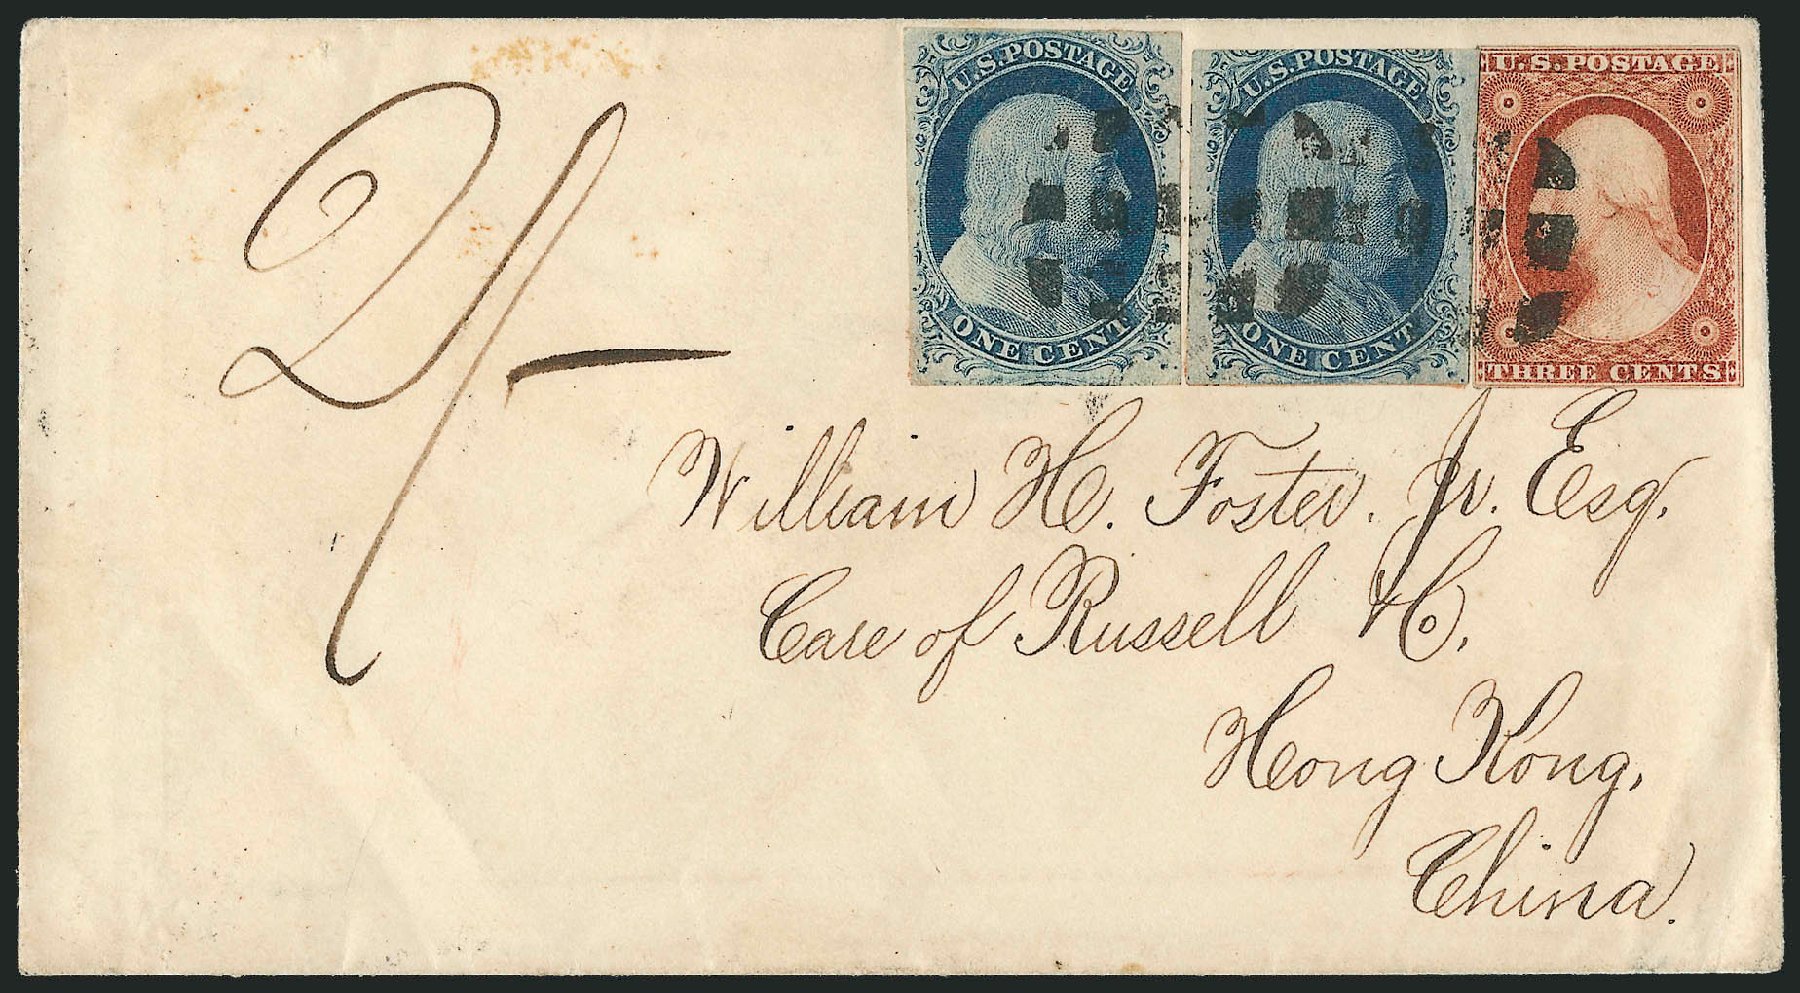 U.S. POSTAGE
ONE CENT
U.S. POSTAGE
ONE CENT
U.S. POSTAGE
THREE CENTS
2/-
William H. Foster. Jr. Esq.
Care of Russell & Co.
Hong Kong,
China.